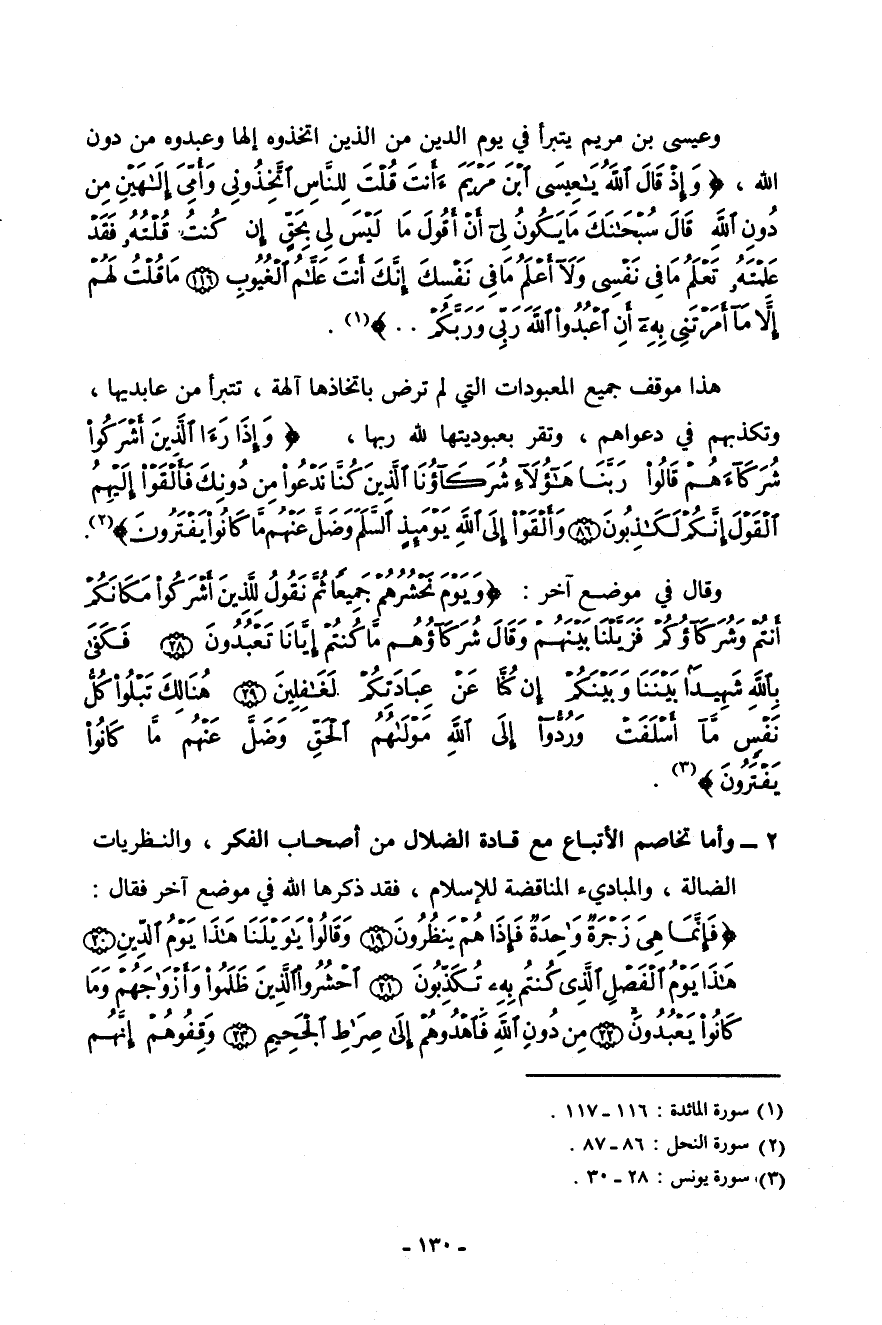 وعيسى بن مريم يتبرأ في يوم الدين من الذين اتخذوه إلها وعبدوه من دون
الله ، ﴿ وَإِذْ قَالَ ٱللَّهُ يَٰعِيسَى ٱبْنَ مَرْيَمَ ءَأَنتَ قُلْتَ لِلنَّاسِ ٱتَّخِذُونِي وَأُمِّيَ إِلَٰهَيْنِ مِن
دُونِ ٱللَّهِ قَالَ سُبْحَٰنَكَ مَا يَكُونُ لِيٓ أَنْ أَقُولَ مَا لَيْسَ لِي بِحَقٍّ إِن كُنتُ قُلْتُهُۥ فَقَدْ
عَلِمْتَهُۥ تَعْلَمُ مَا فِي نَفْسِي وَلَآ أَعْلَمُ مَا فِي نَفْسِكَ إِنَّكَ أَنتَ عَلَّٰمُ ٱلْغُيُوبِ ﴿١١٦﴾ مَا قُلْتُ لَهُمْ
إِلَّا مَآ أَمَرْتَنِي بِهِۦٓ أَنِ ٱعْبُدُوا۟ ٱللَّهَ رَبِّي وَرَبَّكُمْ . . ﴾(١) .
هذا موقف جميع المعبودات التي لم ترض باتخاذها آلهة ، تتبرأ من عابديها ،
وتكذبهم في دعواهم ، وتقر بعبوديتها لله ربها ، ﴿ وَإِذَا رَءَا ٱلَّذِينَ أَشْرَكُوا۟
شُرَكَآءَهُمْ قَالُوا۟ رَبَّنَا هَٰٓؤُلَآءِ شُرَكَآؤُنَا ٱلَّذِينَ كُنَّا نَدْعُوا۟ مِن دُونِكَ فَأَلْقَوْا۟ إِلَيْهِمُ
ٱلْقَوْلَ إِنَّكُمْ لَكَٰذِبُونَ ﴿٨٦﴾ وَأَلْقَوْا۟ إِلَى ٱللَّهِ يَوْمَئِذٍ ٱلسَّلَمَ وَضَلَّ عَنْهُم مَّا كَانُوا۟ يَفْتَرُونَ ﴾(٢).
وقال في موضع آخر : ﴿ وَيَوْمَ نَحْشُرُهُمْ جَمِيعًا ثُمَّ نَقُولُ لِلَّذِينَ أَشْرَكُوا۟ مَكَانَكُمْ
أَنتُمْ وَشُرَكَآؤُكُمْ فَزَيَّلْنَا بَيْنَهُمْ وَقَالَ شُرَكَآؤُهُم مَّا كُنتُمْ إِيَّانَا تَعْبُدُونَ ﴿٢٨﴾ فَكَفَىٰ
بِٱللَّهِ شَهِيدًۢا بَيْنَنَا وَبَيْنَكُمْ إِن كُنَّا عَنْ عِبَادَتِكُمْ لَغَٰفِلِينَ ﴿٢٩﴾ هُنَالِكَ تَبْلُوا۟ كُلُّ
نَفْسٍ مَّآ أَسْلَفَتْ وَرُدُّوٓا۟ إِلَى ٱللَّهِ مَوْلَىٰهُمُ ٱلْحَقِّ وَضَلَّ عَنْهُم مَّا كَانُوا۟
يَفْتَرُونَ ﴾(٣) .
٢ ــ وأما تخاصم الأتباع مع قادة الضلال من أصحاب الفكر ، والنظريات
الضالة ، والمباديء المناقضة للإسلام ، فقد ذكرها الله في موضع آخر فقال :
﴿ فَإِنَّمَا هِيَ زَجْرَةٌ وَٰحِدَةٌ فَإِذَا هُمْ يَنظُرُونَ ﴿١٩﴾ وَقَالُوا۟ يَٰوَيْلَنَا هَٰذَا يَوْمُ ٱلدِّينِ ﴿٢٠﴾
هَٰذَا يَوْمُ ٱلْفَصْلِ ٱلَّذِي كُنتُم بِهِۦ تُكَذِّبُونَ ﴿٢١﴾ ٱحْشُرُوا۟ ٱلَّذِينَ ظَلَمُوا۟ وَأَزْوَٰجَهُمْ وَمَا
كَانُوا۟ يَعْبُدُونَ ﴿٢٢﴾ مِن دُونِ ٱللَّهِ فَٱهْدُوهُمْ إِلَىٰ صِرَٰطِ ٱلْجَحِيمِ ﴿٢٣﴾ وَقِفُوهُمْ إِنَّهُم
(١) سورة المائدة : ١١٦ ــ ١١٧ .
(٢) سورة النحل : ٨٦ ــ ٨٧ .
(٣) سورة يونس : ٢٨ ــ ٣٠ .
- ١٣٠ -